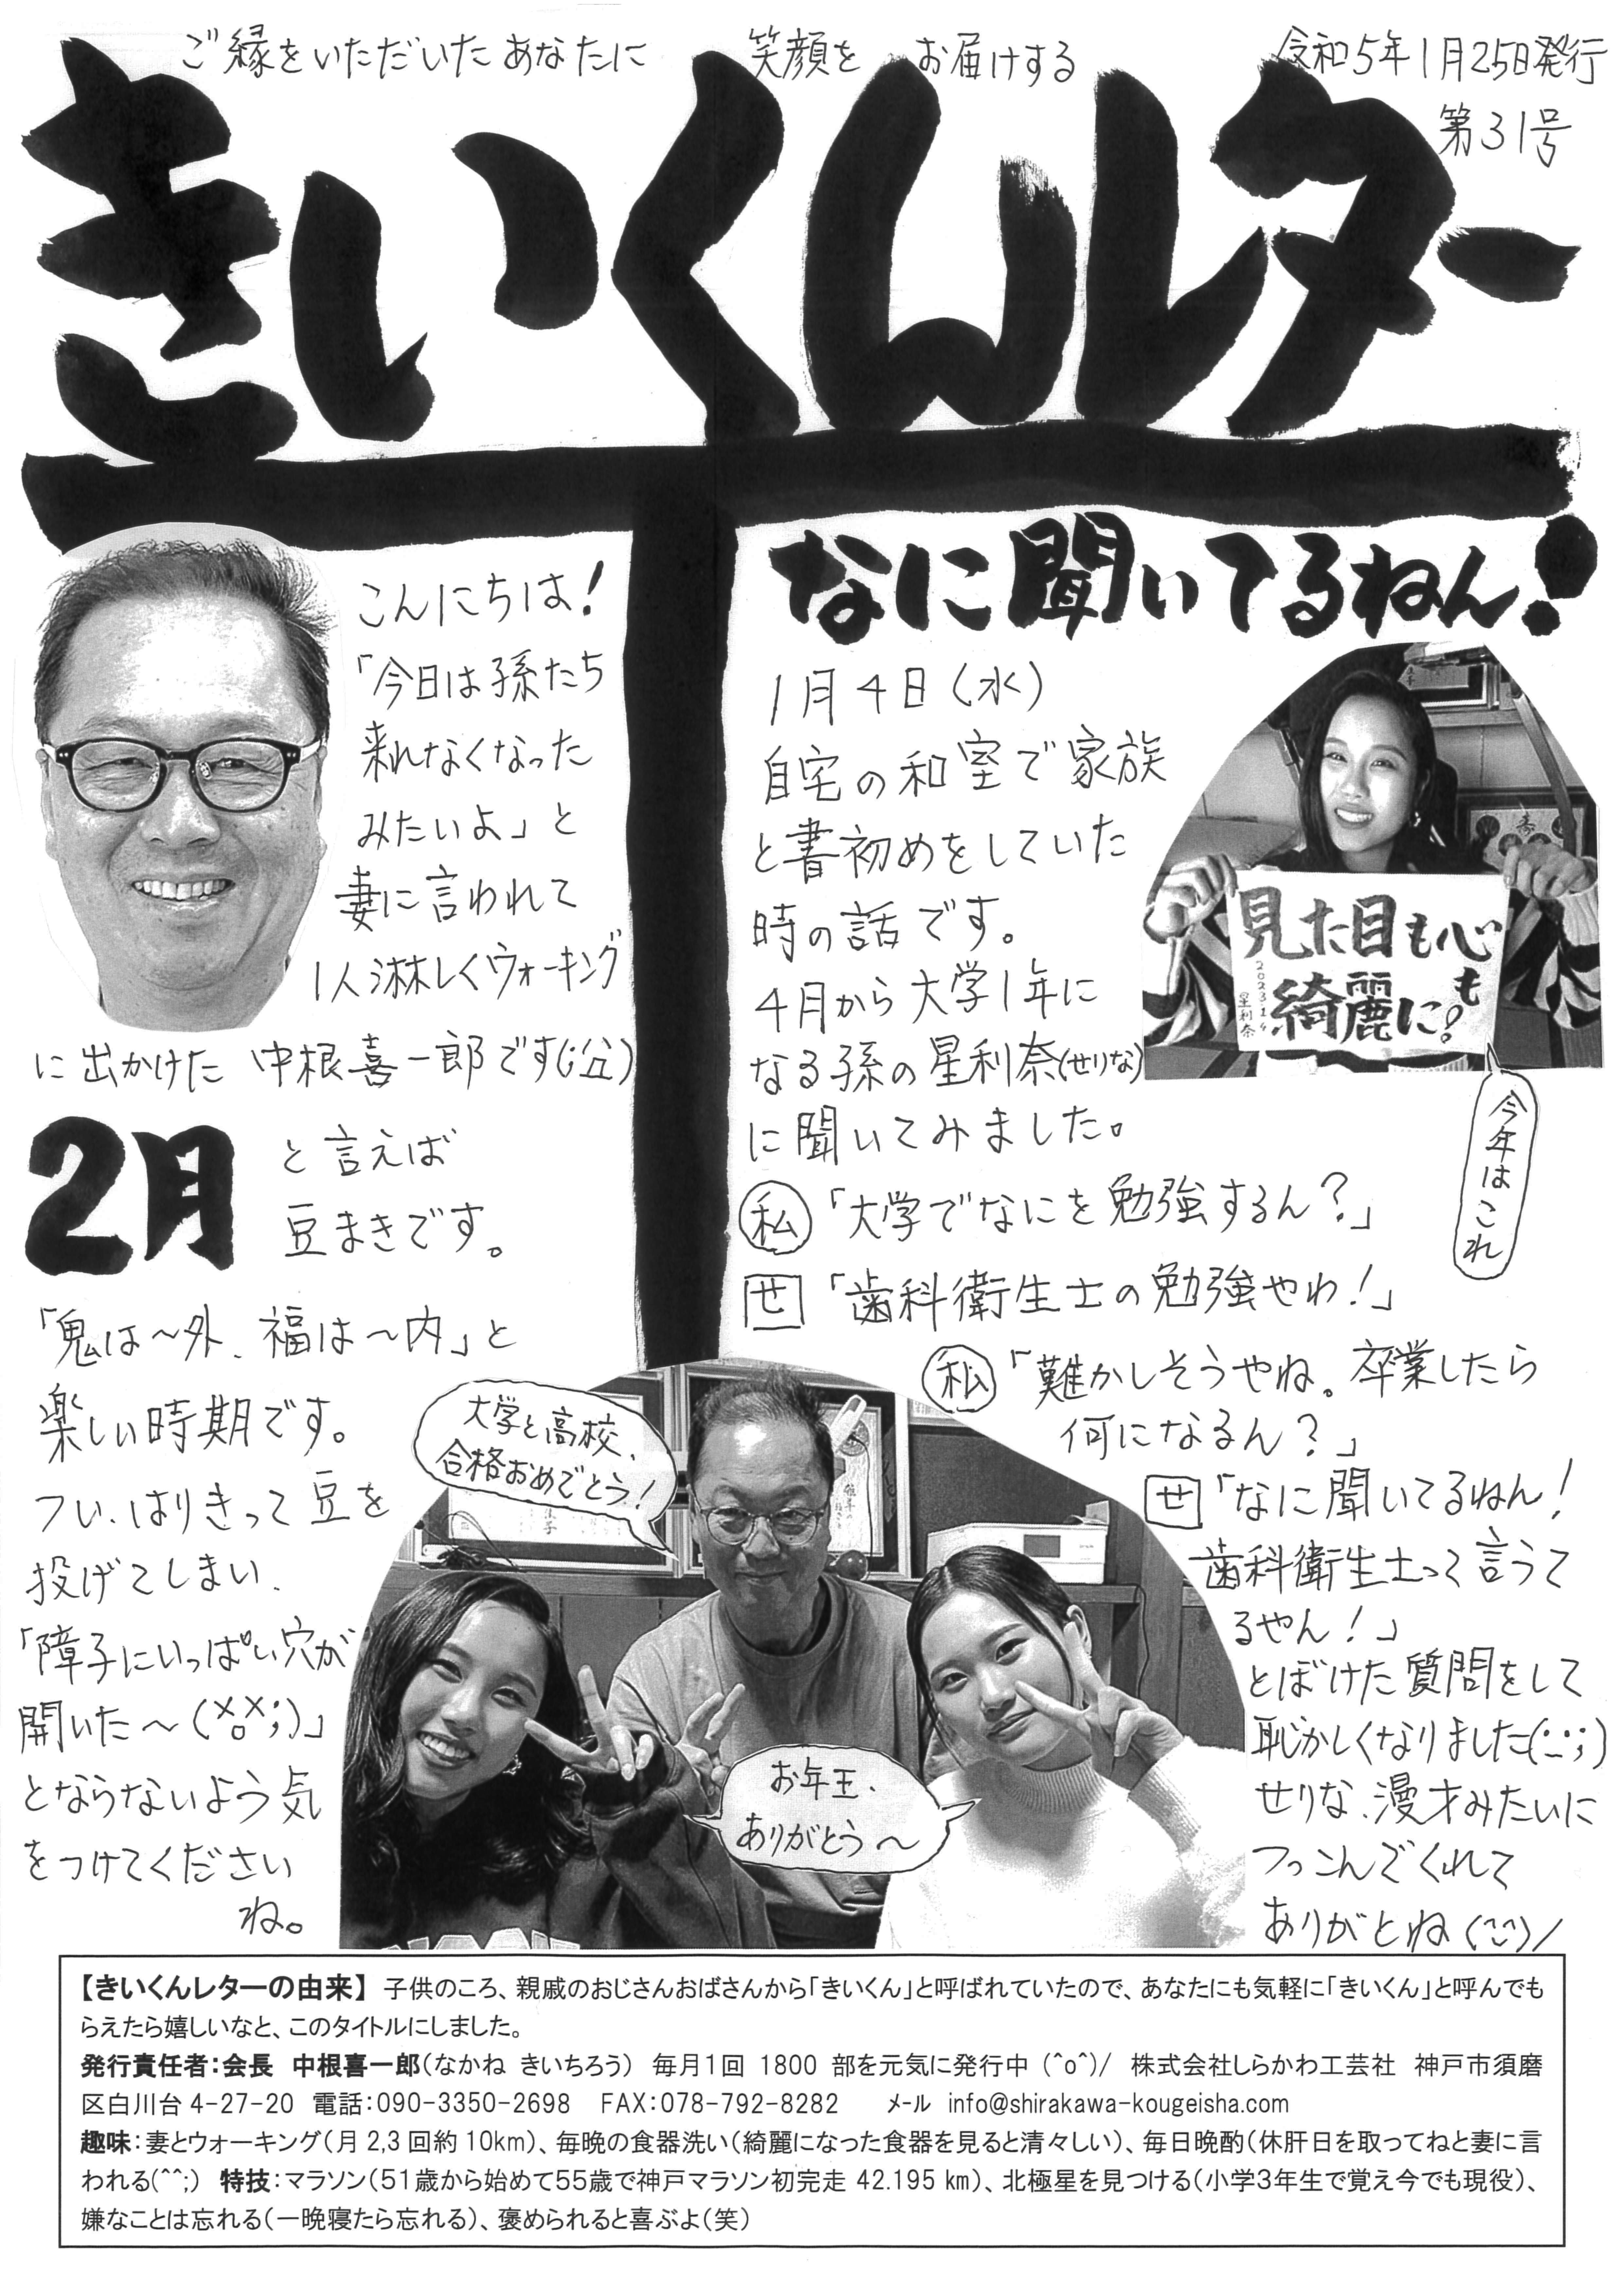 ご縁をいただいたあなたに 笑顔を お届けする
令和5年1月25日発行
第31号
きいくんレター
こんにちは!
「今日は孫たち
来れなくなった
みたいよ」と
妻に言われて
1人淋しくウォーキング
に出かけた 中根喜一郎です(;公)
2月
と言えば
豆まきです。
「鬼は〜外、福は〜内」と
楽しい時期です。
つい、はりきって豆を
投げてしまい、
「障子にいっぱい穴が
開いた〜(×o×;)」
とならないよう気
をつけてください
ね。
なに聞いてるねん!
1月4日(水)
自宅の和室で家族
と書初めをしていた
時の話です。
4月から大学1年に
なる孫の星利奈(せりな)
に聞いてみました。
見た目も心
も
綺麗に!
2023.1.4
星利奈
今年はこれ
私「大学でなにを勉強するん?」
せ「歯科衛生士の勉強やわ!」
私「難かしそうやね。卒業したら
何になるん?」
せ「なに聞いてるねん!
歯科衛生士って言うて
るやん!」
とぼけた質問をして
恥かしくなりました(-_-;)
せりな、漫才みたいに
つっこんでくれて
ありがとね(^^)/
大学と高校、
合格おめでとう!
お年玉、
ありがとう〜
【きいくんレターの由来】 子供のころ、親戚のおじさんおばさんから「きいくん」と呼ばれていたので、あなたにも気軽に「きいくん」と呼んでも
らえたら嬉しいなと、このタイトルにしました。
発行責任者:会長 中根喜一郎(なかね きいちろう) 毎月1回 1800 部を元気に発行中 (^o^)/ 株式会社しらかわ工芸社 神戸市須磨
区白川台 4-27-20 電話:090-3350-2698 FAX:078-792-8282 メール info@shirakawa-kougeisha.com
趣味:妻とウォーキング(月 2,3 回約 10km)、毎晩の食器洗い(綺麗になった食器を見ると清々しい)、毎日晩酌(休肝日を取ってねと妻に言
われる(^^;) 特技:マラソン(51歳から始めて55歳で神戸マラソン初完走 42.195 km)、北極星を見つける(小学3年生で覚え今でも現役)、
嫌なことは忘れる(一晩寝たら忘れる)、褒められると喜ぶよ(笑)